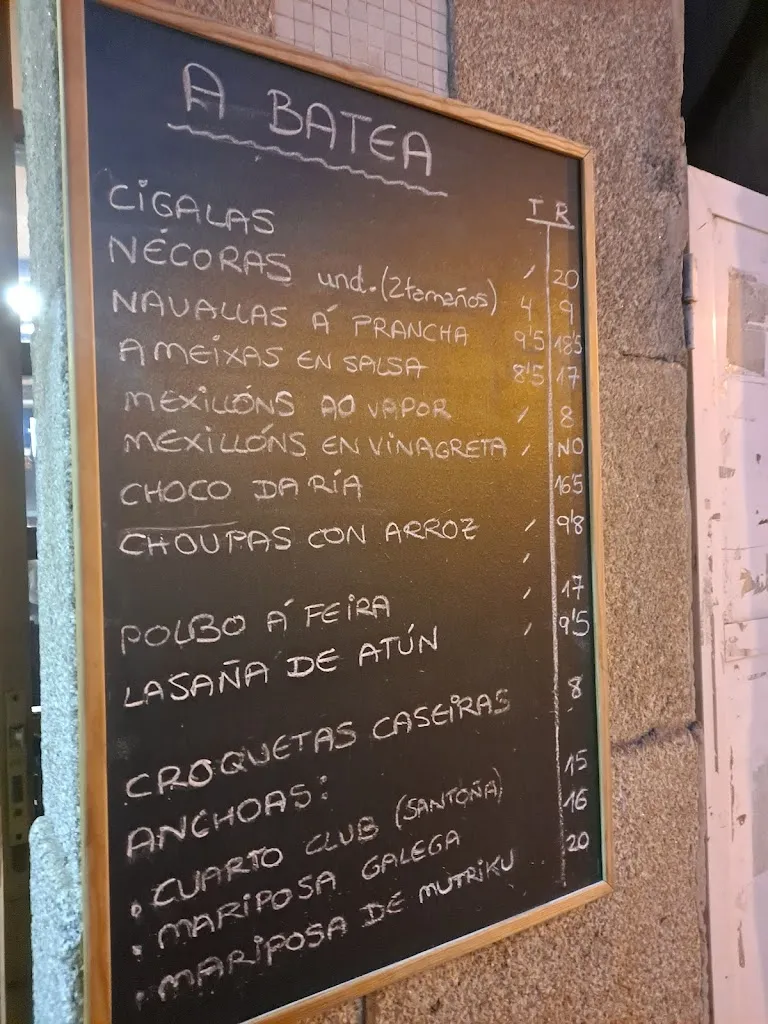 A BATEA
T R
CIGALAS ′ 20
NÉCORAS und. (2 tamaños) 4 9
NAVALLAS Á PRANCHA 9'5 18'5
AMEIXAS EN SALSA 8'5 17
MEXILLÓNS AO VAPOR ′ 8
MEXILLÓNS EN VINAGRETA ′ NO
CHOCO DA RÍA 16'5
CHOUPAS CON ARROZ ′ 9'8
POLBO Á FEIRA ′ 17
LASAÑA DE ATÚN ′ 9'5
CROQUETAS CASEIRAS 8
ANCHOAS:
· CUARTO CLUB (SANTOÑA) 15
· MARIPOSA GALEGA 16
· MARIPOSA DE MUTRIKU 20